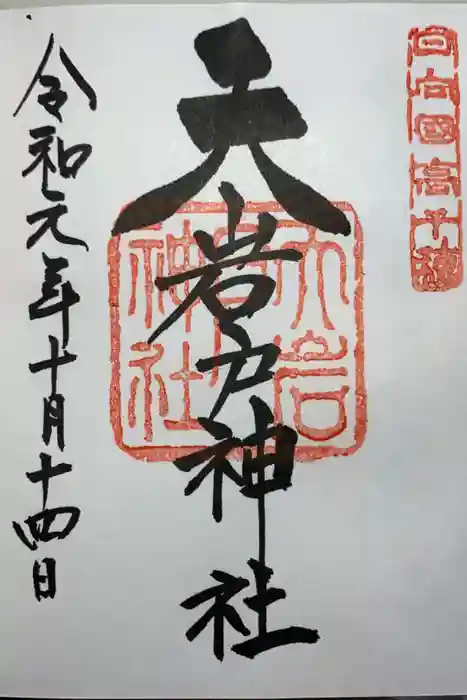 日向國高千穂
天岩戸神社
天岩戸神社
令和元年十月十四日